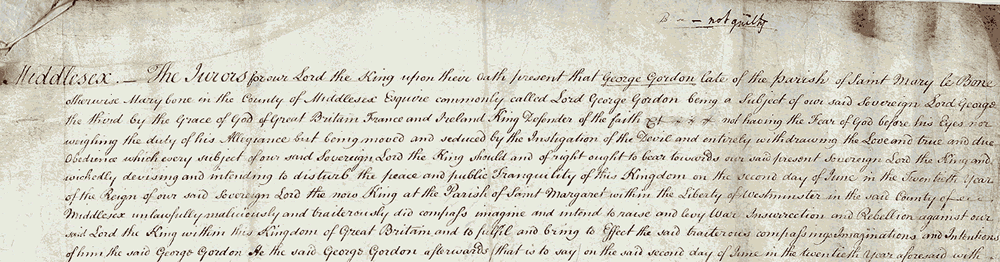 not guilty
Middlesex. — The Jurors for our Lord the King upon their Oath present that George Gordon late of the Parish of Saint Mary le Bone
otherwise Marybone in the County of Middlesex Esquire commonly called Lord George Gordon being a Subject of our said Sovereign Lord George
the third by the Grace of God of Great Britain France and Ireland King Defender of the faith &c not having the Fear of God before his Eyes nor
weighing the duty of his Allegiance but being moved and seduced by the Instigation of the Devil and entirely withdrawing the Love and true and due
Obedience which every subject of our said Sovereign Lord the King should and of right ought to bear towards our said present Sovereign Lord the King and
wickedly devising and intending to disturb the peace and public Tranquility of this Kingdom on the second day of June in the Twentieth Year
of the Reign of our said Sovereign Lord the now King at the Parish of Saint Margaret within the Liberty of Westminster in the said County of
Middlesex unlawfully maliciously and traiterously did compass imagine and intend to raise and levy War Insurrection and Rebellion against our
said Lord the King within this Kingdom of Great Britain and to fulfil and bring to Effect the said traiterous compassings Imaginations and Intentions
of him the said George Gordon He the said George Gordon afterwards (that is to say) on the said second day of June in the twentieth Year aforesaid with